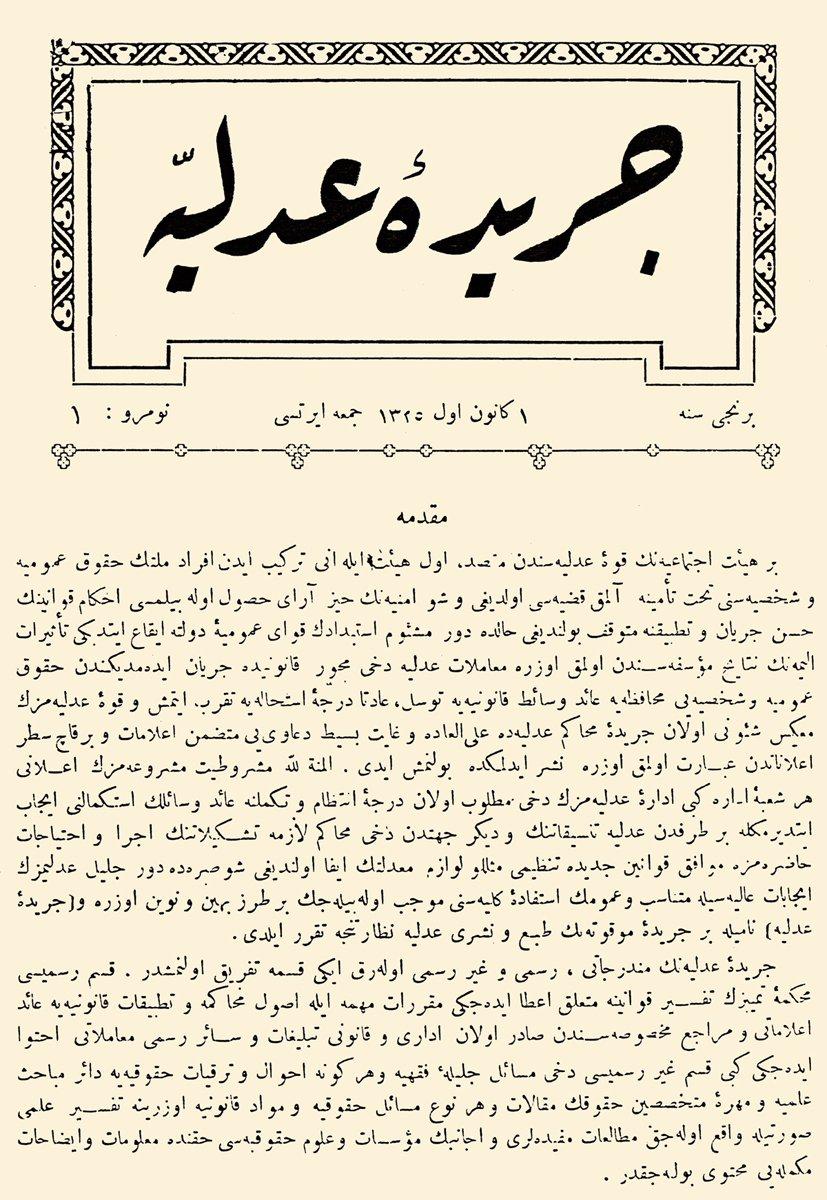 جريدهٔ عدليّه
برنجی سنه
١ كانون اول ١٣٢٥ جمعه ايرتسی
نومرو : ١
مقدمه
بر هيئت اجتماعيه‌نك قوۀ عدليه‌سندن مقصد، اول هيئت ايله انی تركيب ايدن افراد ملتك حقوق عموميه
و شخصيه‌سنی تحت تأمينه آلمق قضيه‌سی اولديغی و شو امنيه‌نك حيز آرای حصول اوله بيلمسی احكام قوانينك
حسن جريان و تطبيقنه متوقف بولنديغی حالده دور مشئوم استبدادك قوای عموميۀ دولته ايقاع ايتديكی تأثيرات
اليمه‌نك نتايج مؤسفه‌سندن اولمق اوزره معاملات عدليه دخی محور قانونيده جريان ايده‌مديكندن حقوق
عموميه و شخصيه‌يی محافظه‌يه عائد وسائط قانونيه‌يه توسل، عادتا درجۀ استحاله‌يه تقرب ايتمش و قوۀ عدليه‌مزك
معكس شئونی اولان جريدۀ محاكم عدليه‌ده علی العاده و غايت بسيط دعاوی‌يی متضمن اعلامات و برقاچ سطر
اعلاناتدن عبارت اولمق اوزره نشر ايدلمكده بولنمش ايدی . المنة لله مشروطيت مشروعه‌مزك اعلانی
هر شعبۀ اداره كبی ادارۀ عدليه‌مزك دخی مطلوب اولان درجۀ انتظام و تكملنه عائد وسائلك استكمالنی ايجاب
ايتديرمكله بر طرفدن عدليه تنسيقاتنك و ديكر جهتدن دخی محاكم لازمه تشكيلاتنك اجرا و احتياجات
حاضره‌مزه موافق قوانين جديده تنظيمی مثللو لوازم معدلتك ايفا اولنديغی شو صره‌ده دور جليل عدليمزك
ايجابات عاليه‌سيله متناسب و عمومك استفادۀ كليه‌سنی موجب اوله‌بيله‌جك بر طرز بهين و نوين اوزره و(جريدۀ
عدليه) ناميله بر جريدۀ موقوته‌نك طبع و نشری عدليه نظارتنجه تقرر ايلدی .
جريدۀ عدليه‌نك مندرجاتی ، رسمی و غير رسمی اوله‌رق ايكی قسمه تفريق اولنمشدر . قسم رسميسی
محكمۀ تميزك تفسير قوانينه متعلق اعطا ايده‌جكی مقررات مهمه ايله اصول محاكمه و تطبيقات قانونيه‌يه عائد
اعلاماتی و مراجع مخصوصه‌سندن صادر اولان اداری و قانونی تبليغات و سائر رسمی معاملاتی احتوا
ايده‌جكی كبی قسم غير رسميسی دخی مسائل جليلۀ فقهيه و هركونه احوال و ترقيات حقوقيه‌يه دائر مباحث
علميه و مهرۀ متخصصين حقوقك مقالات و هر نوع مسائل حقوقيه و مواد قانونيه اوزرينه تفسير علمی
صورتيله واقع اوله‌جق مطالعات مفيده‌لری و اجانبك مؤسسات و علوم حقوقيه‌سی حقنده معلومات و ايضاحات
مكمله‌يی محتوی بوله‌جقدر .